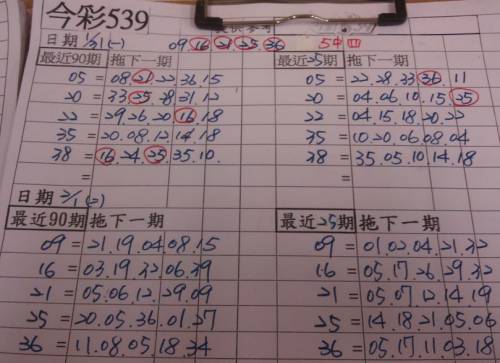 今彩539
日期 1/31(一) 09 16 21 25 36 5中四
最近90期 拖下一期 最近25期 拖下一期
05 = 08.21.22.36.15 05 = 22.28.33.36.11
20 = 33.25.28.21.12 20 = 04.06.10.15.25
22 = 29.26.20.16.18 22 = 04.15.18.20.22
35 = 20.08.12.14.18 35 = 10.20.06.08.04
38 = 16.24.25.35.10. 38 = 35.05.10.14.18
= =
日期 2/1(二)
最近90期 拖下一期 最近25期 拖下一期
09 = 21.19.04.08.15 09 = 01.02.04.21.32
16 = 03.19.32.06.39 16 = 05.17.26.29.32
21 = 05.06.12.29.09 21 = 05.07.12.14.19
25 = 20.05.36.01.27 25 = 14.18.21.05.06
36 = 11.08.05.18.34 36 = 05.17.11.03.18